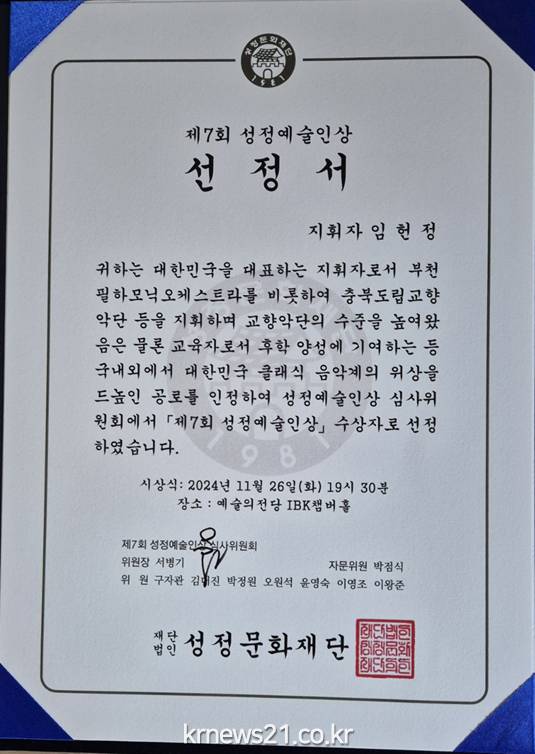 성정문화재단
1981
제7회 성정예술인상
선 정 서
지휘자 임 헌 정
귀하는 대한민국을 대표하는 지휘자로서 부천
필하모닉오케스트라를 비롯하여 충북도립교향
악단 등을 지휘하며 교향악단의 수준을 높여왔
음은 물론 교육자로서 후학 양성에 기여하는 등
국내외에서 대한민국 클래식 음악계의 위상을
드높인 공로를 인정하여 성정예술인상 심사위
원회에서 「제7회 성정예술인상」 수상자로 선정
하였습니다.
1981
시상식: 2024년 11월 26일(화) 19시 30분
장소 : 예술의전당 IBK챔버홀
제7회 성정예술인상 심사위원회
위원장 서병기 자문위원 박점식
위 원 구자관 김대진 박정원 오원석 윤영숙 이영조 이왕준
재단법인 성정문화재단
krnews21.co.kr